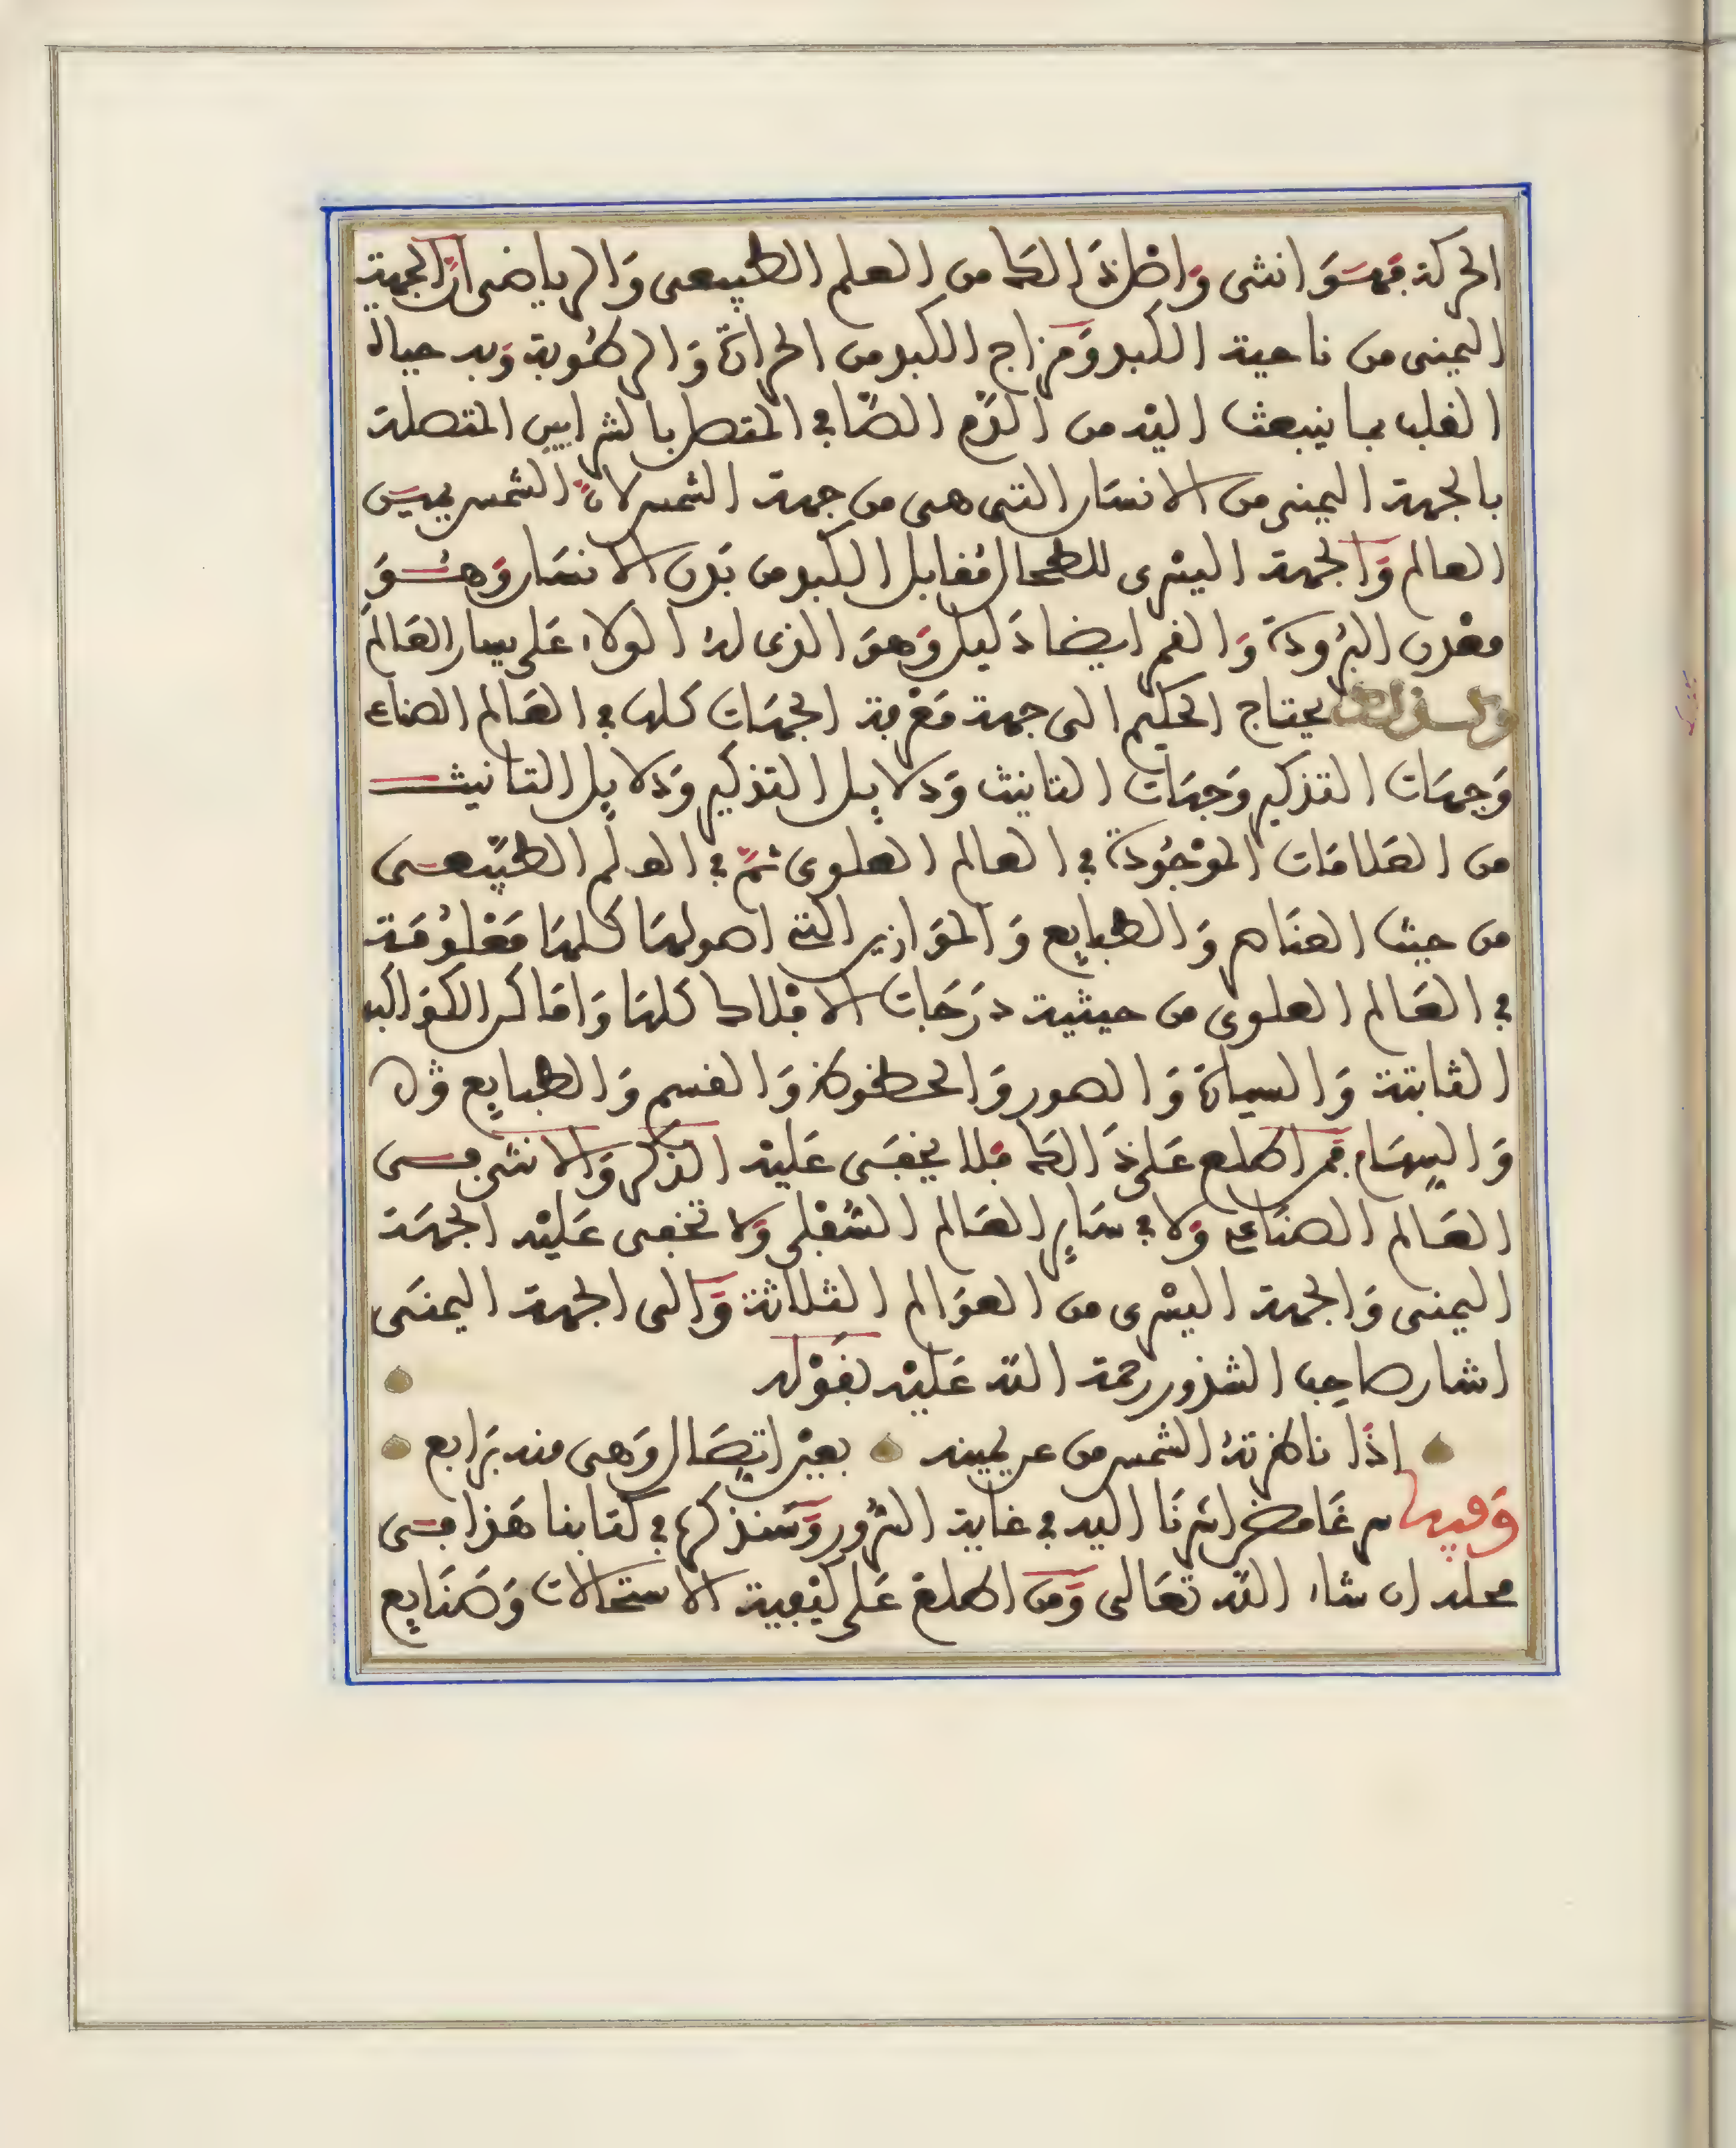 الحركة فهو انثى واصل ذالك من العلم الطبيعى والرياضى ان الجهة
اليمنى من ناحية الكبد ومزاج الكبد من الحرارة والرطوبة وبه حياة
القلب بما ينبعث اليه من الدم الصافي المتصل بالشرايين المتصلة
بالجهة اليمنى من الانسان التى هى من جهة الشمس لان الشمس يمين
العالم والجهة اليسرى للطحال مقابل الكبد من بدن الانسان وهو
معدن البرودة والقمر ايضا دليل وهو الذى له الولاء على يسار العالم
ولذلك يحتاج الحكيم الى جهة معرفة الجهات كلها في العالم الصناعي
وجهات التذكير وجهات التانيث ودلايل التذكير ودلايل التانيث
من العلامات الموجودة في العالم العلوى ثم في العلم الطبيعى
من حيث العناصر والطبايع والموازين التي اصولها كلها معلومة
في العالم العلوى من حيثية درجات الافلاك كلها واماكن الكواكب
الثابتة والسيارة والصور والحظوظ والقسم والطبايع
والسهام فمن اطلع على ذالك فلا يخفى عليه الذكر والانثى فى
العالم الصناعي ولا في ساير العالم السفلى ولا تخفى عليه الجهة
اليمنى والجهة اليسرى من العوالم الثلاثة والى الجهة اليمنى
اشار صاحب الشذور رحمة الله عليه بقوله
اذا ناظرته الشمس من عن يمينه بغير اتصال وهى منه برابع
وفيها سر غامض اشرنا اليه في غاية السرور وسنذكرها في كتابنا هذا فى
محله ان شاء الله تعالى ومن اطلع على كيفية الاستحالات وصنايع